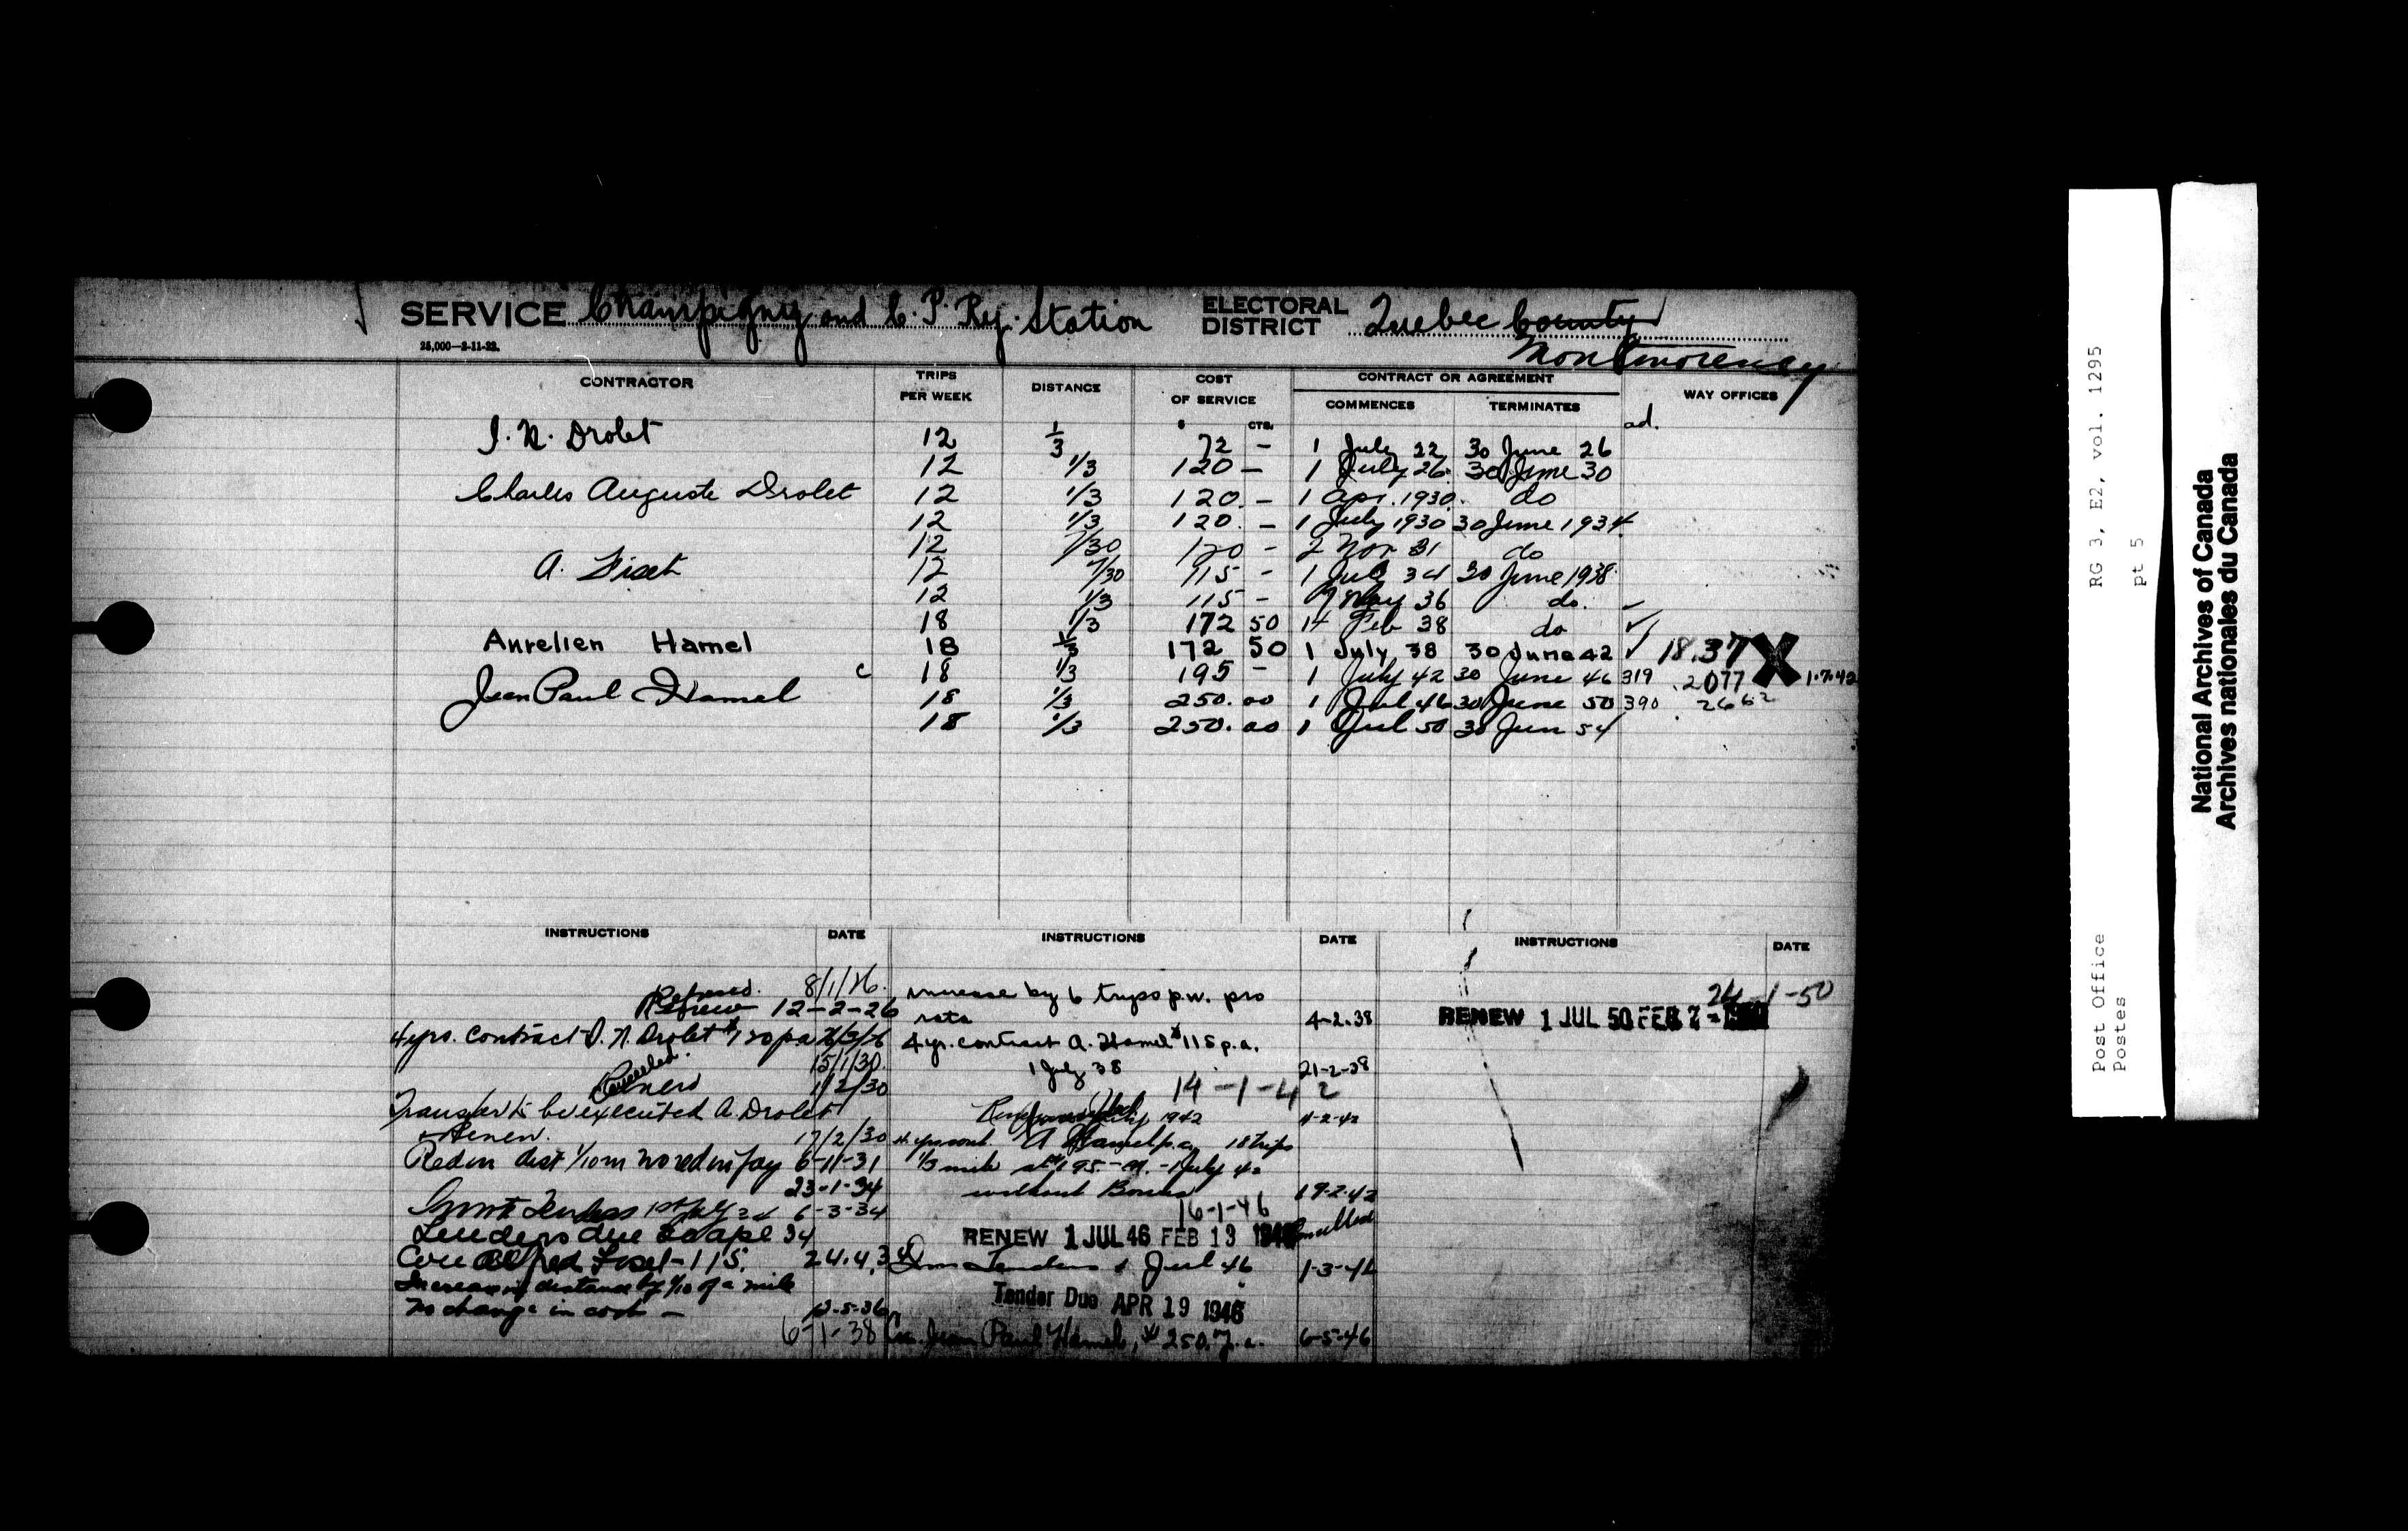 SERVICE Champigny and C. P. Ry. Station ELECTORAL DISTRICT Quebec County
Montmorency
25,000—2-11-22.
CONTRACTOR TRIPS PER WEEK DISTANCE COST OF SERVICE CONTRACT OR AGREEMENT WAY OFFICES
COMMENCES TERMINATES
$ CTS. ad.
J. N. Drolet 12 1/3 72 - 1 July 22 30 June 26
12 1/3 120 - 1 July 26 30 June 30
Charles Auguste Drolet 12 1/3 120. - 1 Apr. 1930. do
12 1/3 120. - 1 July 1930 30 June 1934.
12 7/30 120 - 2 Nov 31 do
A. Fiset 12 7/30 115 - 1 July 34 30 June 1938
12 1/3 115 - May 36 do. ✓
18 1/3 172 50 14 Feb 38 do ✓
Aurelien Hamel 18 1/3 172 50 1 July 38 30 June 42 ✓ 18.37 X
c 18 1/3 195 - 1 July 42 30 June 46 319 2077 1.7.42
Jean Paul Hamel 18 1/3 250.00 1 Jul 46 30 June 50 390 2662
18 1/3 250.00 1 Jul 50 30 Jun 54
INSTRUCTIONS DATE INSTRUCTIONS DATE INSTRUCTIONS DATE
8/1/26.
Renew 12-2-26
4 yrs. contract J. N. Drolet $120 pa
15/1/30.
Cancelled.
Renew 1/2/30
Transfer to be executed A. Drolet
& Renew. 17/2/30
Red in dist 1/10 m no red in pay 6-11-31
23-1-34
Tenders 1st July 34 6-3-34
Tenders due 20 Apl 34
Con Alfred Fiset - 115. 24.4.34
Increasing distance by 1/10 of a mile
No change in cost - 12-5-36
6-1-38
increase by 6 trips p.w. pro
rata 4-2-38
4 yr. contract A. Hamel $115 p.a.
1 July 38 21-2-38
14-1-42
July 1942 4-2-42
4 yrs cont. A Hamel p.a. 18 trips
1/3 mile at $195.- 1 July 42
without Bonus 19-2-42
16-1-46
RENEW 1 JUL 46 FEB 13 1946 Cancelled
Inv Tenders 1 Jul 46 1-3-46
Tender Due APR 19 1946
Con. Jean Paul Hamel, $250. p.a. 6-5-46
24-1-50
RENEW 1 JUL 50 FEB 7 - 1950
Post Office RG 3, E2, vol. 1295
Postes pt 5
National Archives of Canada
Archives nationales du Canada